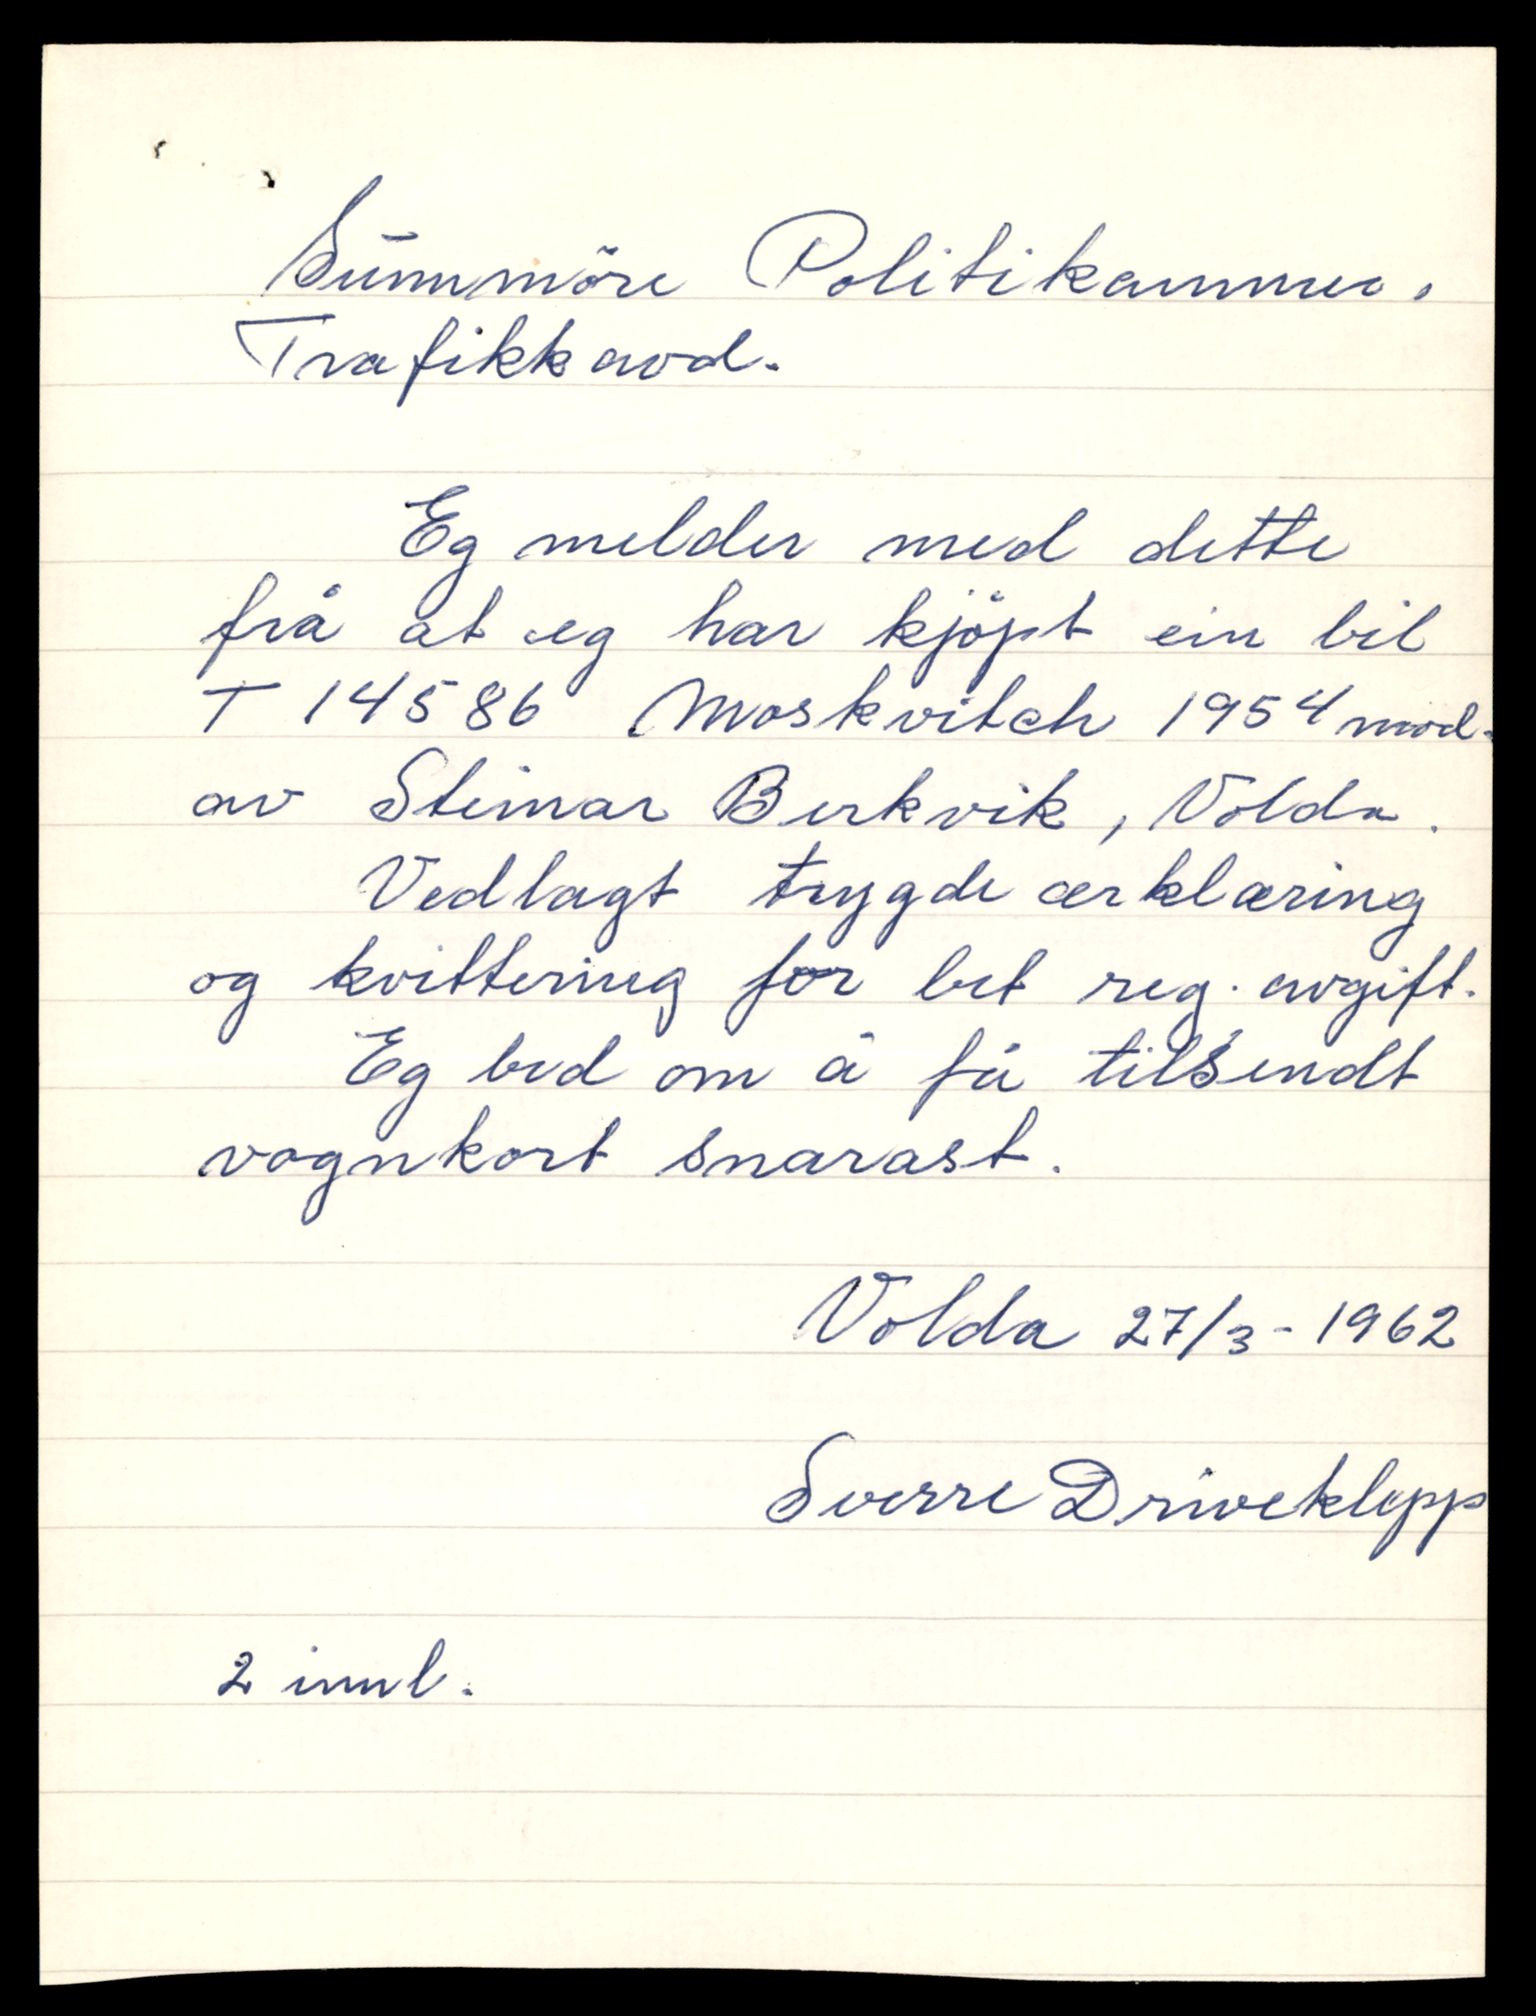 Sunnmöre Politikammer.
Trafikkavd.
Eg melder med dette
frå at eg har kjöpt ein bil
T 14586 Moskvitch 1954 mod.
av Steinar Berkvik, Volda.
Vedlagt trygde ærklæring
og kvittering for bet reg. avgift.
Eg bed om å få tilsendt
vognkort snarast.
Volda 27/3 - 1962
Sverre Driveklepp
2 innl.